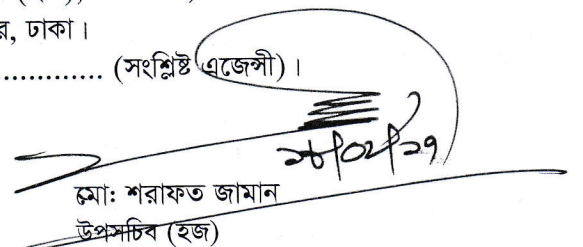 র, ঢাকা।
............. (সংশ্লিষ্ট এজেন্সী)।
মো: শরাফত জামান
উপসচিব (হজ)